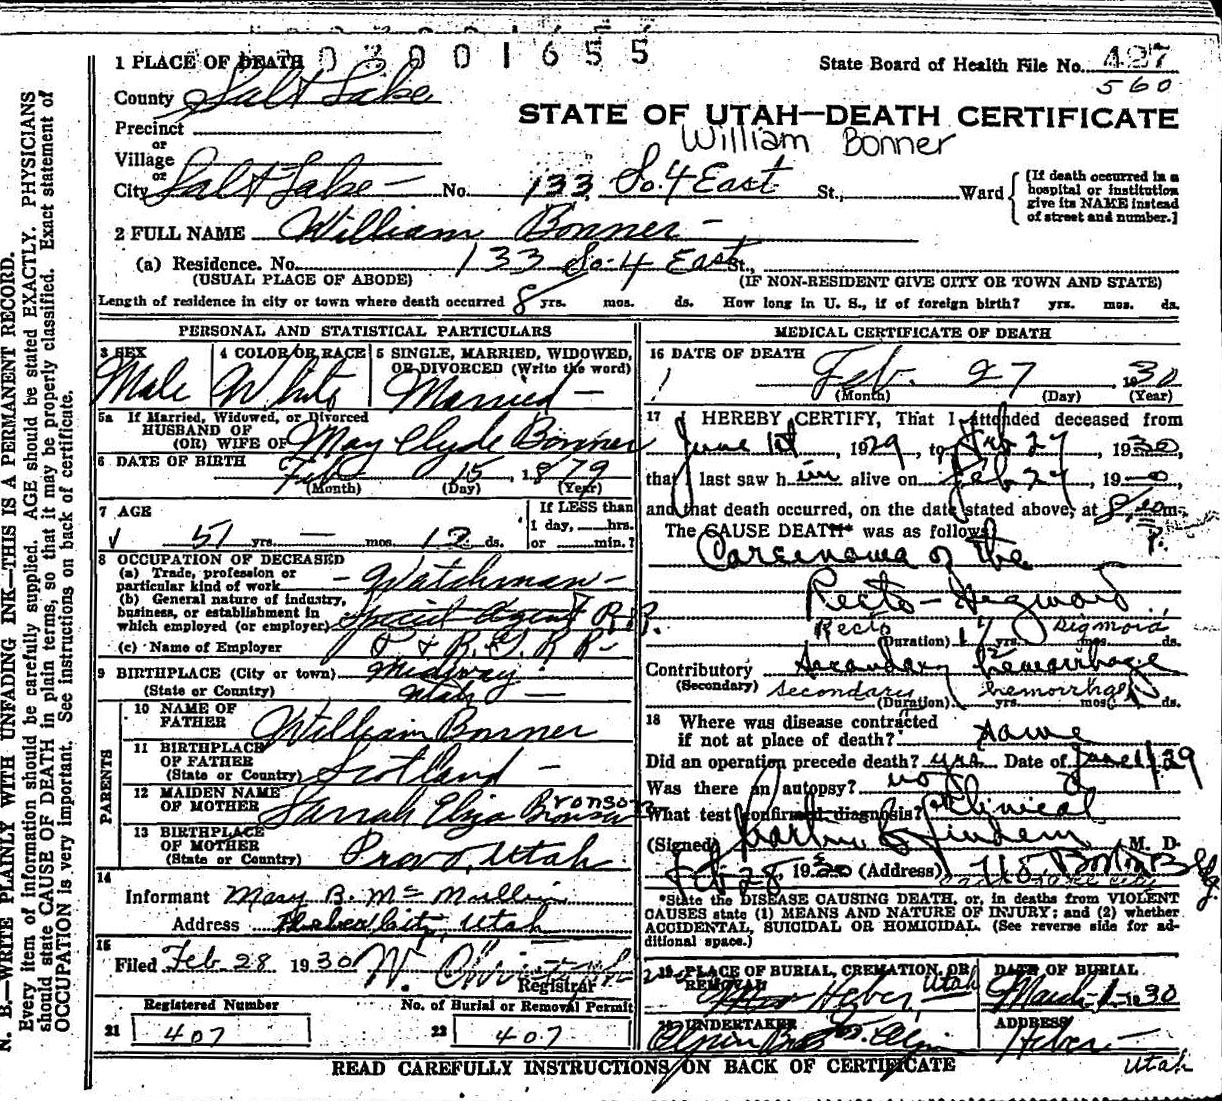 0 3 0 0 1 6 5 5
1 PLACE OF DEATH
State Board of Health File No. 427
560
County Salt Lake
STATE OF UTAH—DEATH CERTIFICATE
William Bonner
Precinct
or
Village
or
City Salt Lake — No. 133 So. 4 East St., Ward
[If death occurred in a hospital or institution give its NAME instead of street and number.]
2 FULL NAME William Bonner —
(a) Residence. No. 133 So. 4 East St.,
(USUAL PLACE OF ABODE) (IF NON-RESIDENT GIVE CITY OR TOWN AND STATE)
Length of residence in city or town where death occurred 8 yrs. mos. ds. How long in U. S., if of foreign birth? yrs. mos. ds.
PERSONAL AND STATISTICAL PARTICULARS
3 SEX
Male
4 COLOR OR RACE
White
5 SINGLE, MARRIED, WIDOWED,
OR DIVORCED (Write the word)
Married —
5a If Married, Widowed, or Divorced
HUSBAND OF
(OR) WIFE OF May Clyde Bonner
6 DATE OF BIRTH Feb 15, 1879
(Month) (Day) (Year)
7 AGE
51 yrs. — mos. 12 ds.
If LESS than
1 day, hrs.
or min.?
8 OCCUPATION OF DECEASED
(a) Trade, profession or
particular kind of work — Watchman —
(b) General nature of industry,
business, or establishment in
which employed (or employer) Special Agent R.R.
(c) Name of Employer D & R. G. R R —
9 BIRTHPLACE (City or town) Midway
(State or Country) Utah —
PARENTS
10 NAME OF
FATHER William Bonner
11 BIRTHPLACE
OF FATHER
(State or Country) Scotland —
12 MAIDEN NAME
OF MOTHER Sarrah Eliza Bronson
Bronson
13 BIRTHPLACE
OF MOTHER
(State or Country) Provo, Utah
14
Informant Mary B. McMullin
Address Heber City, Utah
15
Filed Feb 28 1930 W.
Registrar
Registered Number
21 407
No. of Burial or Removal Permit
22 407
MEDICAL CERTIFICATE OF DEATH
16 DATE OF DEATH
Feb. 27, 1930
(Month) (Day) (Year)
17 I HEREBY CERTIFY, That I attended deceased from
June 1st, 1929, to Feb 27, 1930,
that I last saw him alive on Feb 27, 19—0,
and that death occurred, on the date stated above, at 8,10 m.
P.
The CAUSE DEATH* was as follows:
Carcinoma of the
Recto—Sigmoid
Recto Sigmoid
(Duration) 1 yrs. mos. ds.
Contributory Secondary hemorrhage
(Secondary) secondary hemorrhage
(Duration) yrs. mos. ds.
18 Where was disease contracted
if not at place of death? same
Did an operation precede death? yes. Date of June 1/29
Was there an autopsy? no
What test confirmed diagnosis? Clinical
(Signed) M. D.
Feb 28, 1930 (Address) 718 Boston Bldg.
Salt Lake City
*State the DISEASE CAUSING DEATH, or, in deaths from VIOLENT
CAUSES state (1) MEANS AND NATURE OF INJURY; and (2) whether
ACCIDENTAL, SUICIDAL OR HOMICIDAL. (See reverse side for ad-
ditional space.)
19 PLACE OF BURIAL, CREMATION, OR
REMOVAL Heber, Utah
DATE OF BURIAL
March 1 1930
20 UNDERTAKER
Olpin Bros
ADDRESS
Heber —
Utah
READ CAREFULLY INSTRUCTIONS ON BACK OF CERTIFICATE
N. B.—WRITE PLAINLY WITH UNFADING INK—THIS IS A PERMANENT RECORD.
Every item of information should be carefully supplied. AGE should be stated EXACTLY. PHYSICIANS
should state CAUSE OF DEATH in plain terms, so that it may be properly classified. Exact statement of
OCCUPATION is very important. See instructions on back of certificate.